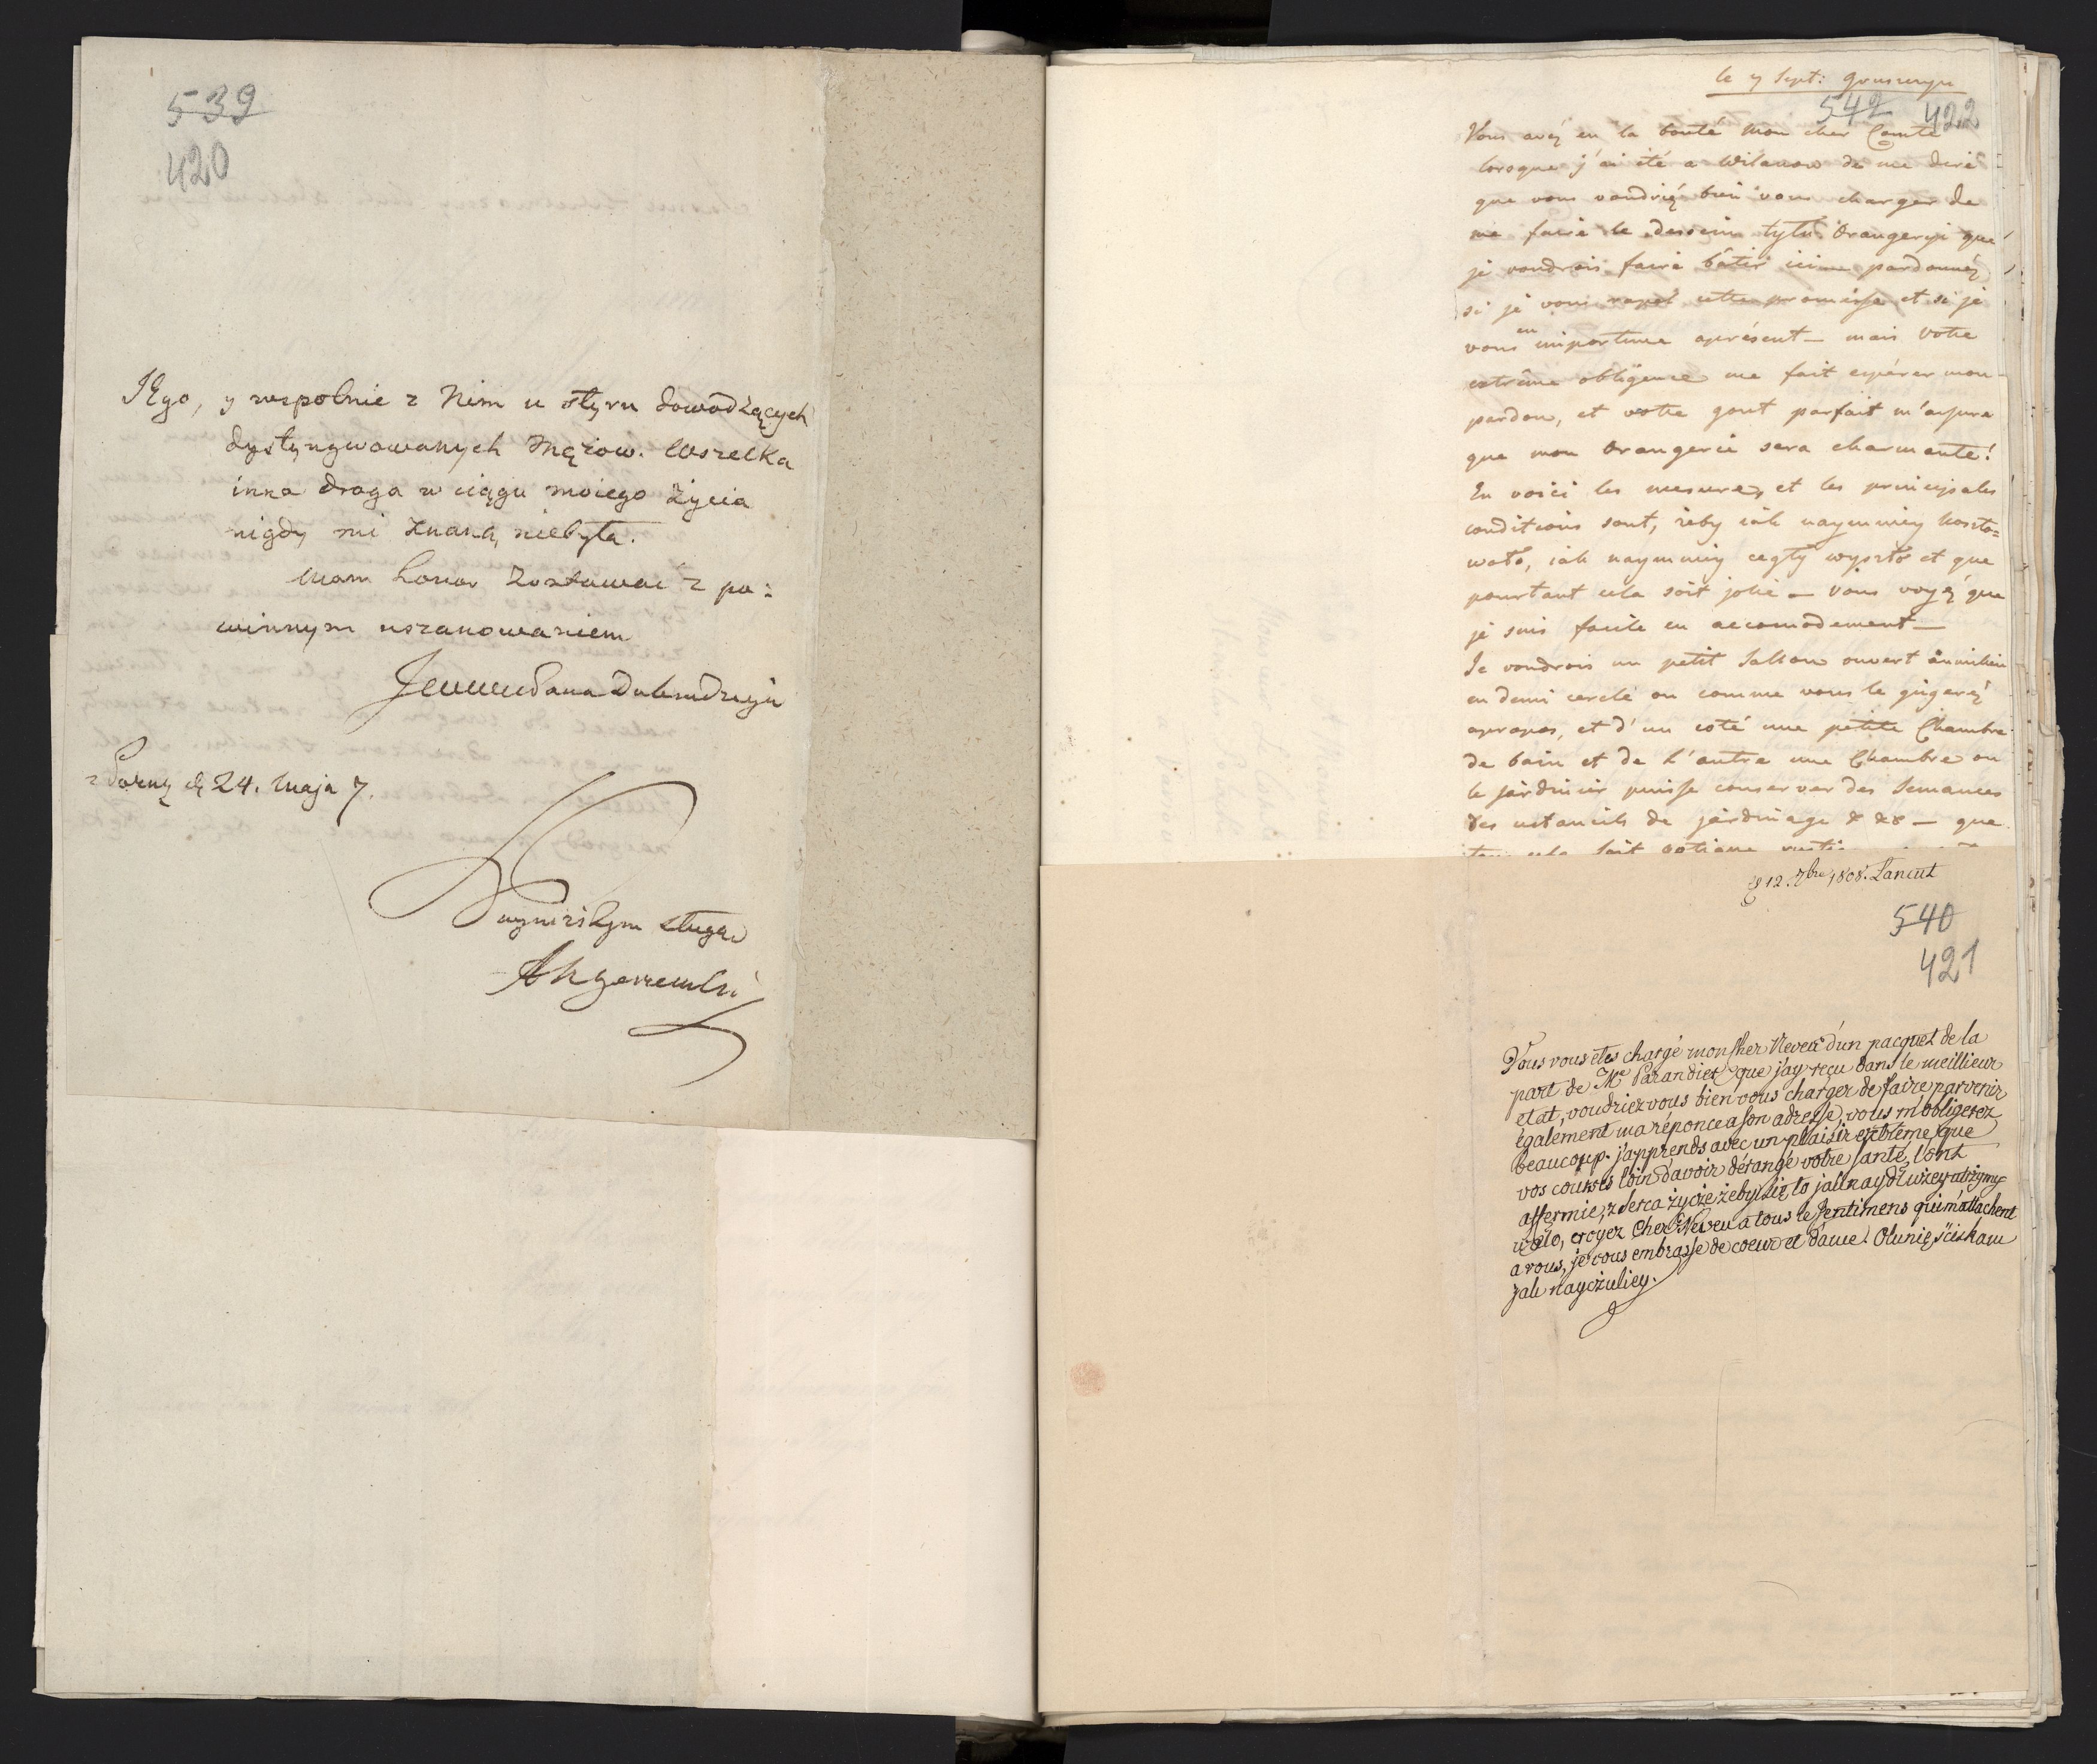 539
420
JEgo, y wspolnie z Nim u steru dowodzących
dystyngwowanych Mężow. Wszelka
inna droga w ciągu moiego życia
nigdy mi znaną niebyła.
Mam honor zostawać z po=
winnym uszanowaniem
Dobrodzieja
24. Maja 7.
naynizszym sługą
le 7 Sept:
542 422
Vous avéz eu la bonté mon cher Comte
lorsque j'ai été a Wilanow de me dire
que vous voudriéz bien vous charger de
me faire le dessein tytu Orangeryi que
je voudrois faire bâtir ici pardonnéz
si je vous rapel cette promesse et si je
vous en importune aprésent — mais votre
extrême obligence me fait espérer mon
pardon, et votre gout parfait m'assure
que mon Orangerie sera charmante!
En voici les mesures, et les principales
conditions sont, żeby iak naymniey koszto=
wało, iak naymniey cegły wyszło et que
pourtant cela soit jolie — vous voyéz que
je suis facile en accomodement —
Je voudrois un petit Sallon ouvert au milieu
en demi cercle ou comme vous le gugeréz
apropos, et d'un coté une petite Chambre
de bain et de l'autre une Chambre ou
le jardinier puisse conserver des Semances
des ustancils de jardinage & && — que
cela soit
12. 7bre 1808. Lancut
540
421
Vous vous etes chargé mon cher Neveu d'un pacquet de la
part de Mr Parandier que j'ay reçu dans le meillieur
etat, voudriez vous bien vous charger de faire parvenir
également ma réponce a son adresse, vous m'obligerez
beaucoup. j'apprends avec un plaisir extrême que
vos courses loin d'avoir dérangé votre santé, l'ont
affermie, z serca życzę żeby się to jak naydłużey utrzymy
wało, croyez Cher Neveu a tous le sentimens qui m'attachent
a vous, je vous embrasse de coeur et d'ame. Olunię sciskam
jak nayczuliey.